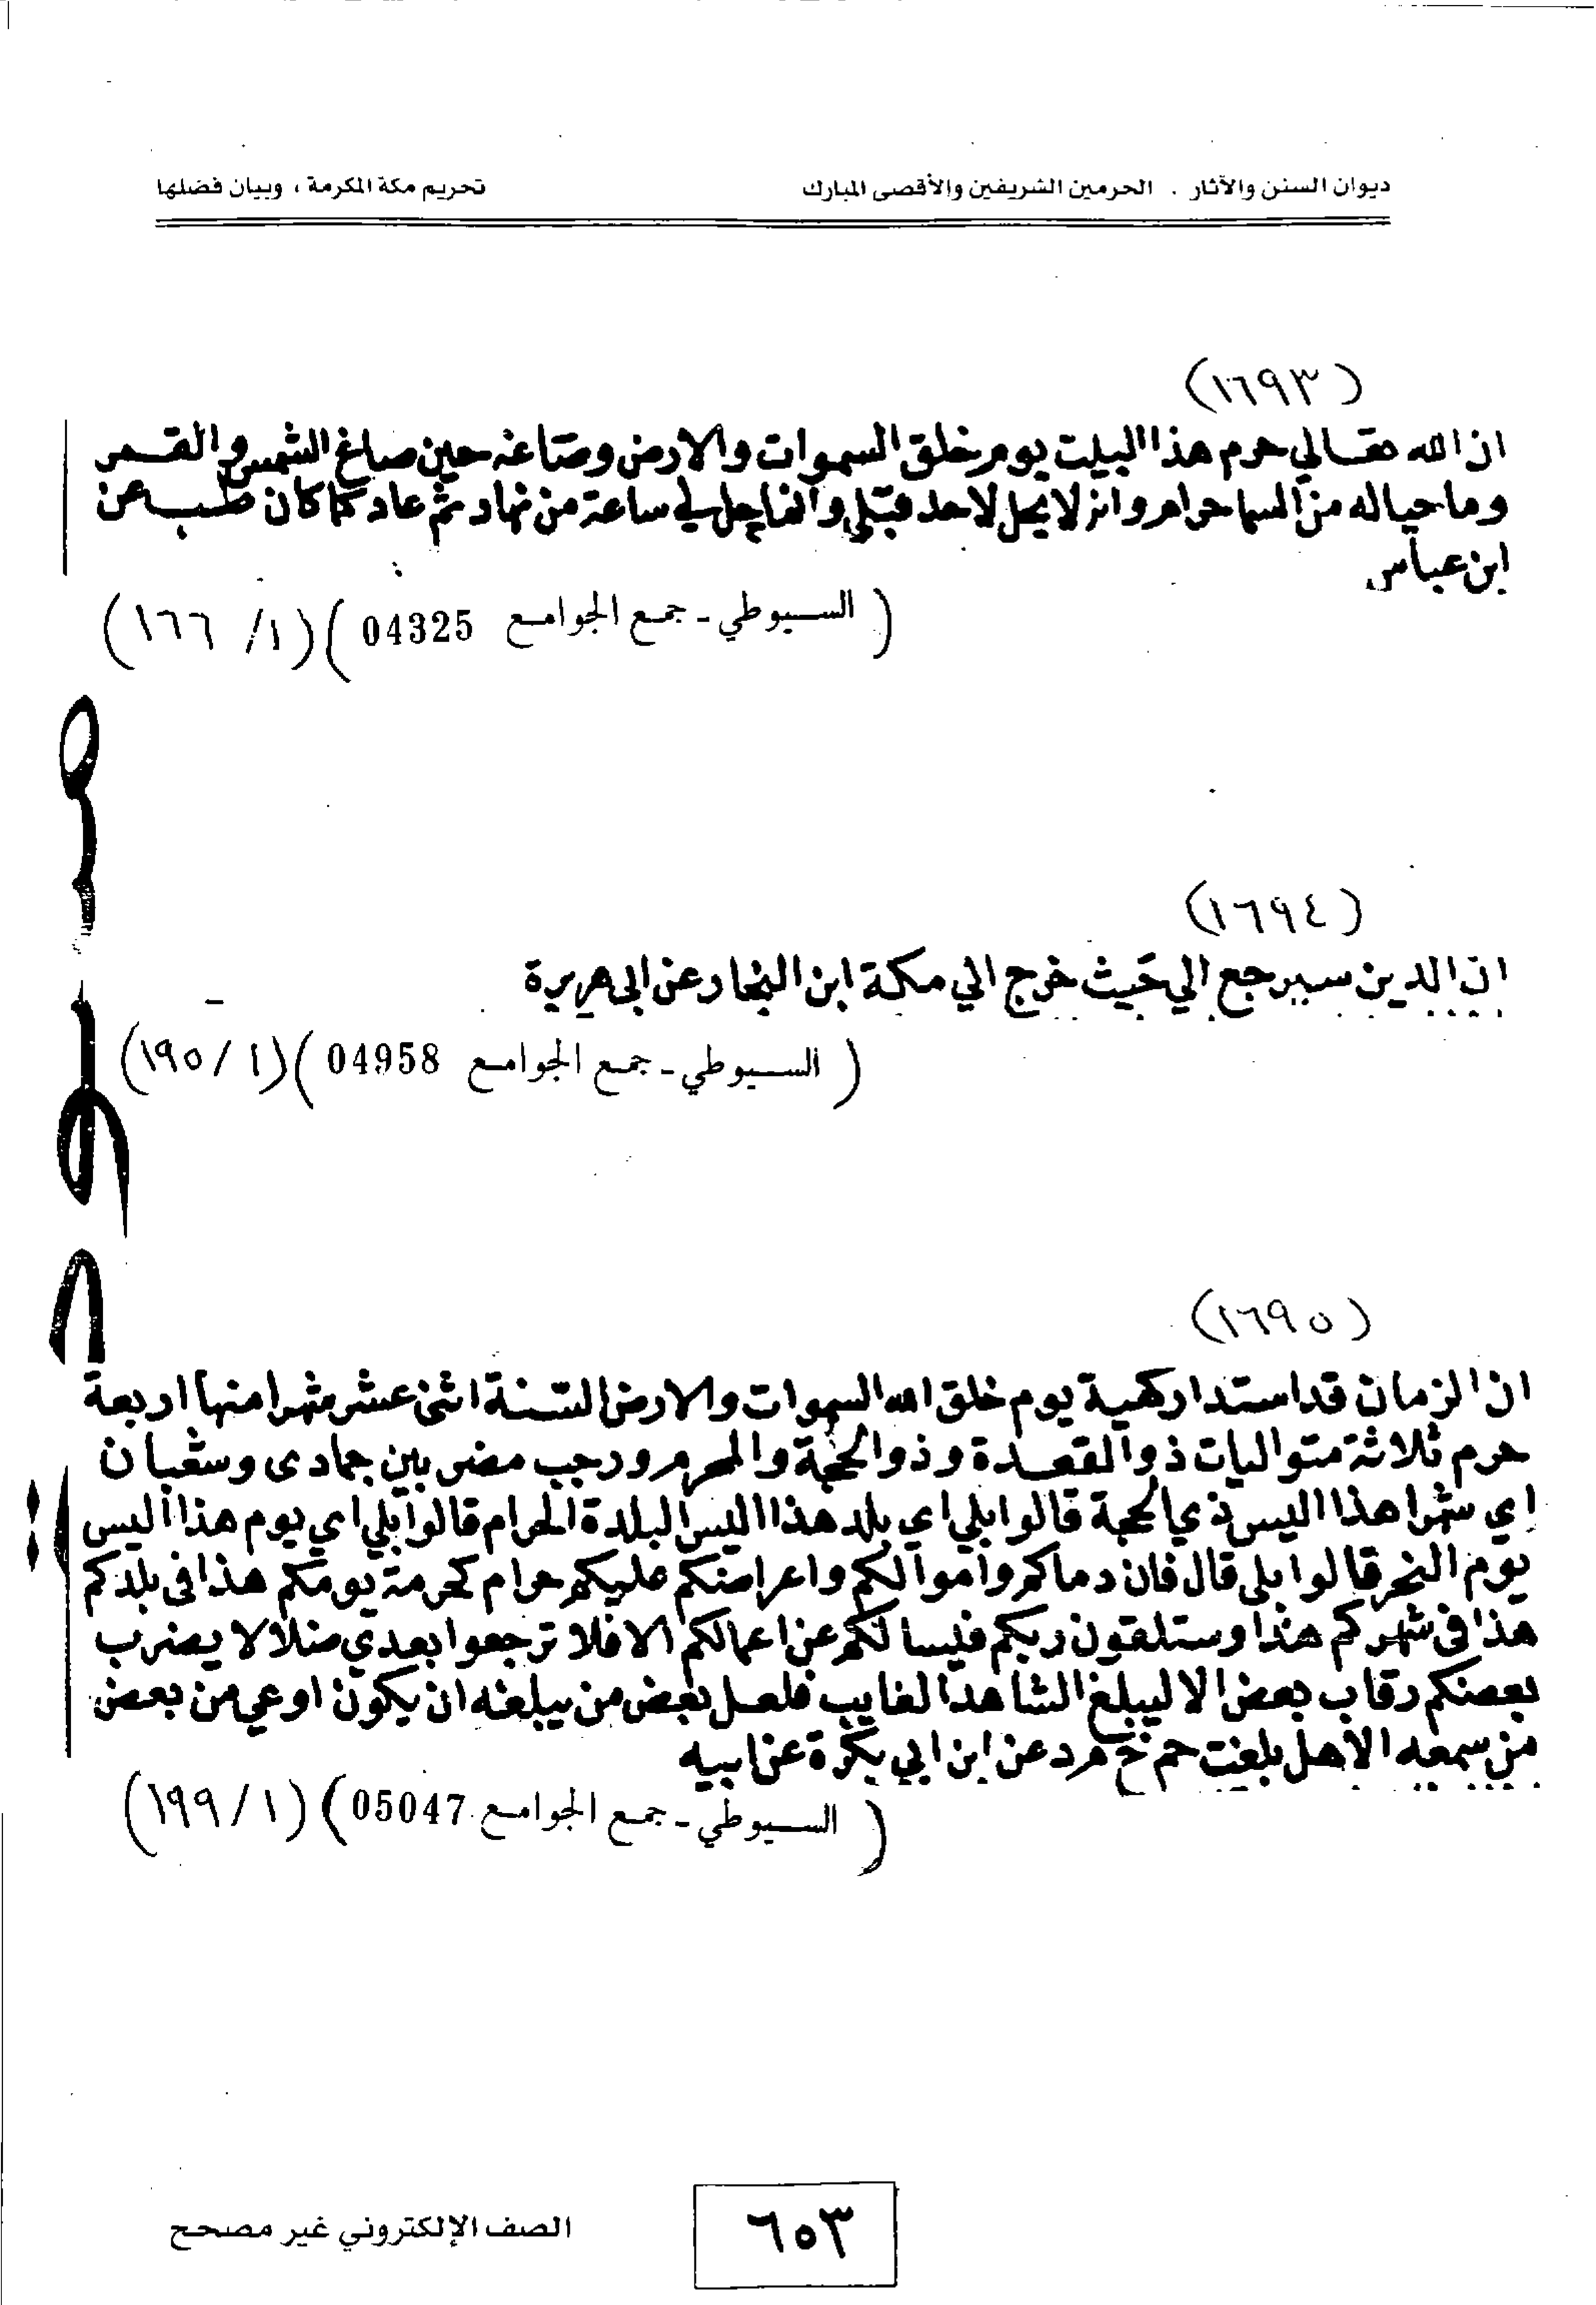 ديوان السنن والآثار . الحرمين الشريفين والأقصى المبارك
تحريم مكة المكرمة ، وبيان فضلها
(١٦٩٣)
ان الله تعالي حرم هذا البيت يوم خلق السموات والارض وصاغه حين صاغ الشمس والقمر
وما حياله من السما حرام وانه لا يحل لاحد قبلي وانما يحل لي ساعة من نهار ثم عاد كما كان طب عن
ابن عباس
( السيوطي - جمع الجوامع 04325 ) (١/ ١٦٦)
(١٦٩٤)
ان الدين سيرجع الي حيث خرج الي مكة ابن النجار عن ابى هريرة
( السيوطي - جمع الجوامع 04958 ) (١/ ١٩٥)
(١٦٩٥)
ان الزمان قد استدار كهية يوم خلق الله السموات والارض السنة اثنى عشر شهرا منها اربعة
حرم ثلاثة متواليات ذو القعدة وذو الحجة والمحرم ورجب مضر بين جمادى وشعبان
اي شهرا هذا اليس ذي الحجة قالوا بلي اي بلد هذا اليس البلدة الحرام قالوا بلي اي يوم هذا اليس
يوم النحر قالوا بلى قال فان دماكم واموالكم واعراضكم عليكم حرام كحرمة يومكم هذا فى بلدكم
هذا فى شهركم هذا وستلقون ربكم فيسالكم عن اعمالكم الا فلا ترجعوا بعدي ضلالا يضرب
بعضكم رقاب بعض الا ليبلغ الشاهد الغايب فلعل بعض من يبلغه ان يكون اوعي من بعض
من سمعه الا هل بلغت حم خ م د عن ابن ابي بكرة عن ابيه
( السيوطي - جمع الجوامع 05047 ) (١/ ١٩٩)
٦٥٣
الصف الإلكتروني غير مصحح